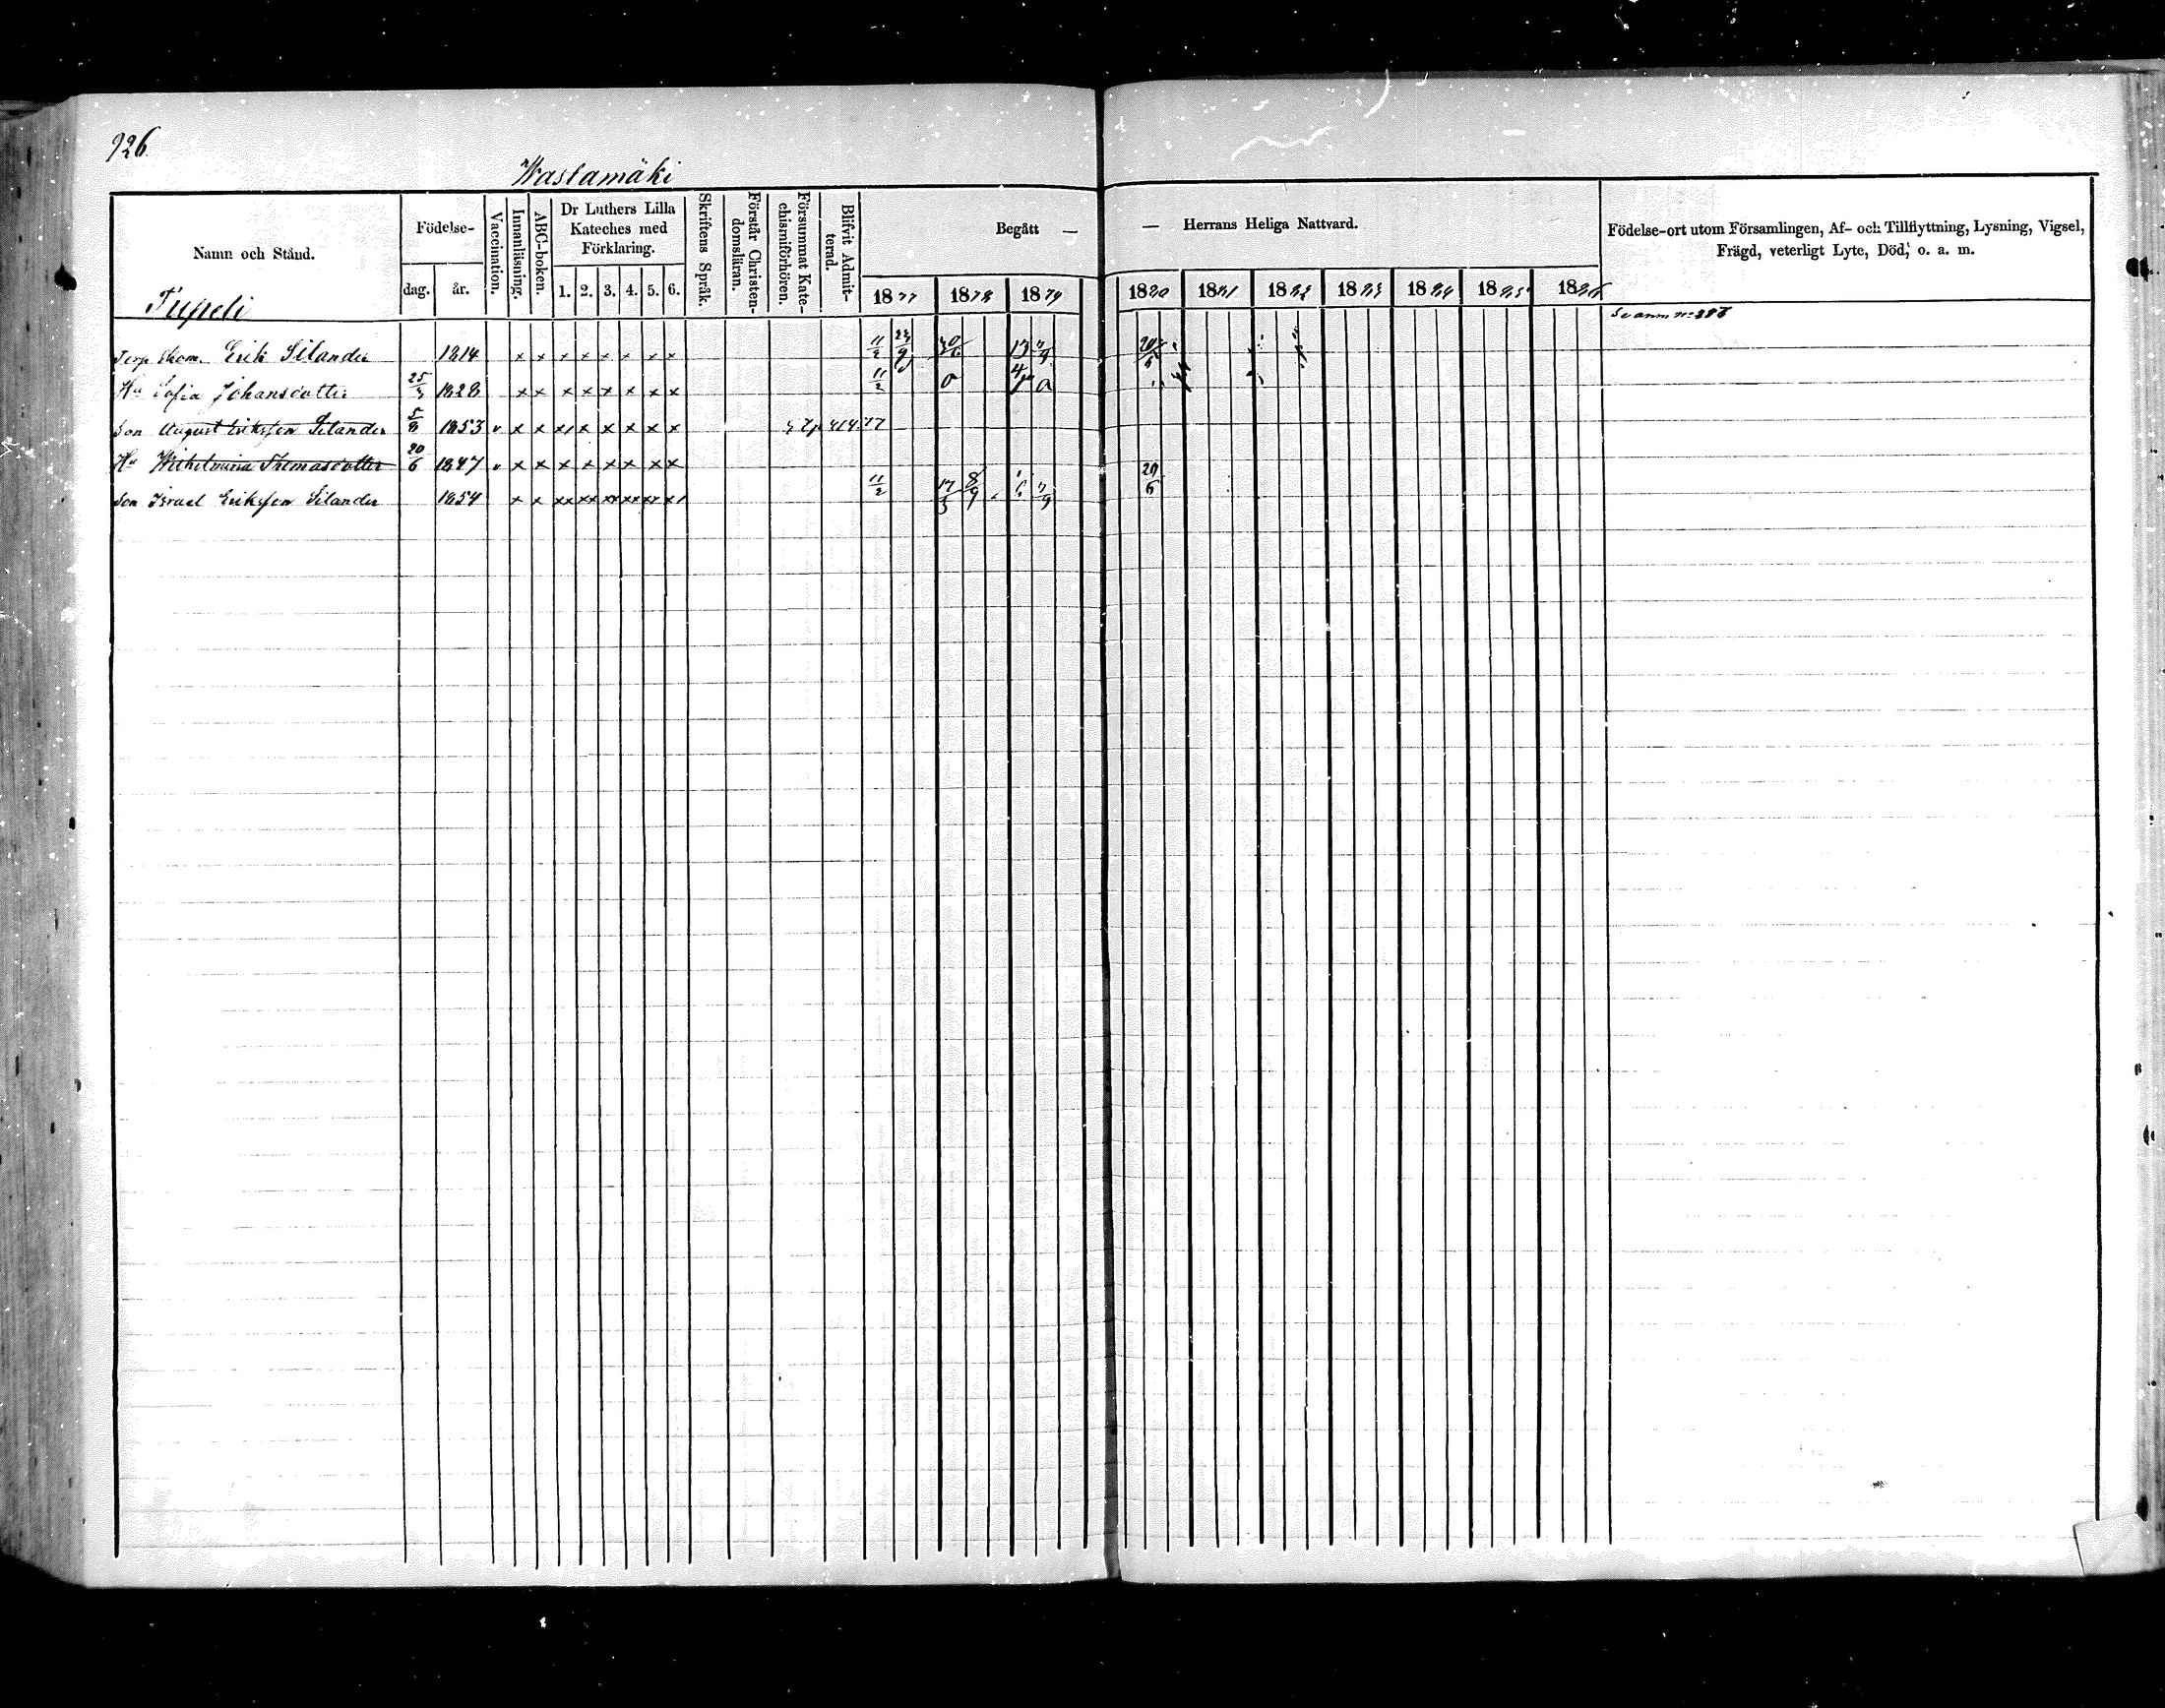 926
Wastamäki
Namn och Stånd.
Födelse-
dag. år.
Vaccination.
Innanläsning.
ABC-boken.
Dr Luthers Lilla
Kateches med
Förklaring.
1. 2. 3. 4. 5. 6.
Skriftens Språk.
Förstår Christen-
domsläran.
Försummat Kate-
chismiförhören.
Blifvit Admit-
terad.
Begått —
— Herrans Heliga Nattvard.
1877 1878 1879 1880 1881 1882 1883 1884 1885 1886
Födelse-ort utom Församlingen, Af- och Tillflyttning, Lysning, Vigsel,
Frägd, veterligt Lyte, Död, o. a. m.
Erik Silander 1814 x x x x x x x x 11/2
Hu Sofia Johansdotter 1828 x x x x x x x x 11/2
Son August Eriksson Silander 5/8 1853 v x x x x x x x x
Hu Wilhelmina Thomasdotter 20/6 1847 v x x x x x x x x
Son Israel Eriksson Silander 1854 x x xx xx xx xx xx x 11/2